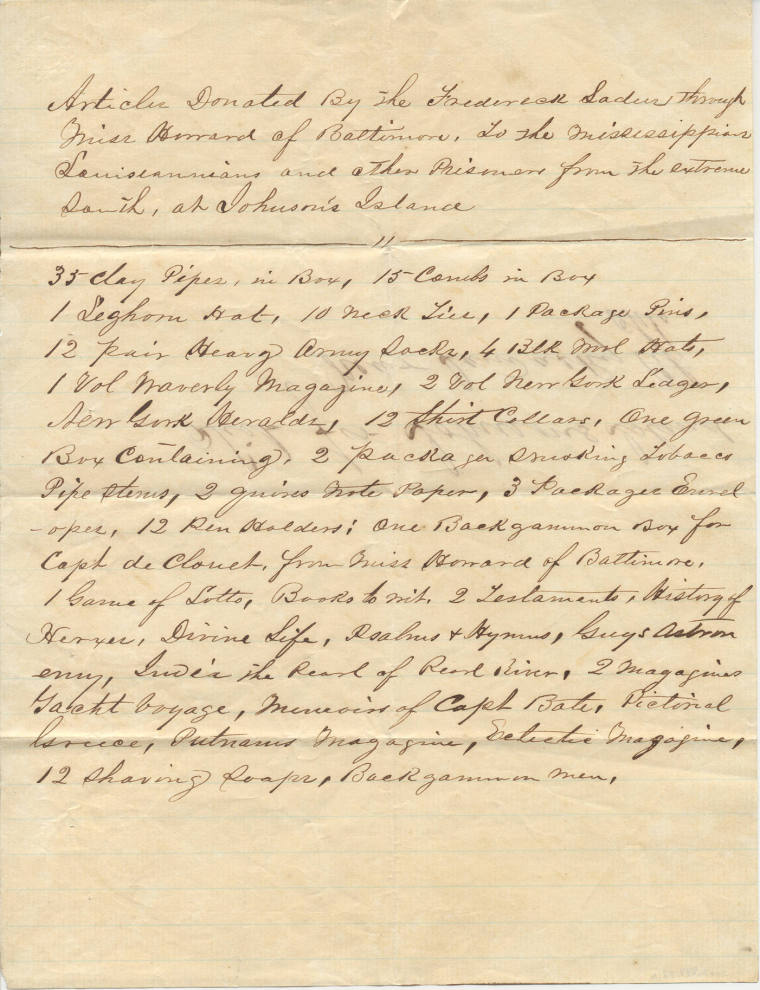 Articles Donated By the Frederick Ladies through
Miss Howard of Baltimore, To the Mississippians
Louisiannians and other Prisoners from the extreme
South, at Johnson's Island
35 Clay Pipes, in Box, 15 Combs in Box
1 Leghorn Hat, 10 Neck Ties, 1 Package Pins,
12 pair Heavy Army Socks, 4 Blk Wool Hats,
1 Vol Waverly Magazine, 2 Vol New York Ledger,
New York Heralds, 12 Shirt Collars, One green
Box Containing, 2 packages Smoking Tobacco
Pipe Stems, 2 quires Note Paper, 3 Packages Envel
-opes, 12 Pen Holders; One Backgammon Box for
Capt de Clouet, from Miss Howard of Baltimore.
1 Game of Lotto, Books to wit. 2 Testaments, History of
Xerxes, Divine Life, Psalms & Hymns, Guys Astron
omy, Inez the Pearl of Pearl River, 2 Magazines
Yacht Voyage, Memoirs of Capt Bate, Pictorial
Greece, Putnams Magazine, Eclectic Magazine,
12 Shaving Soaps, Backgammon men,